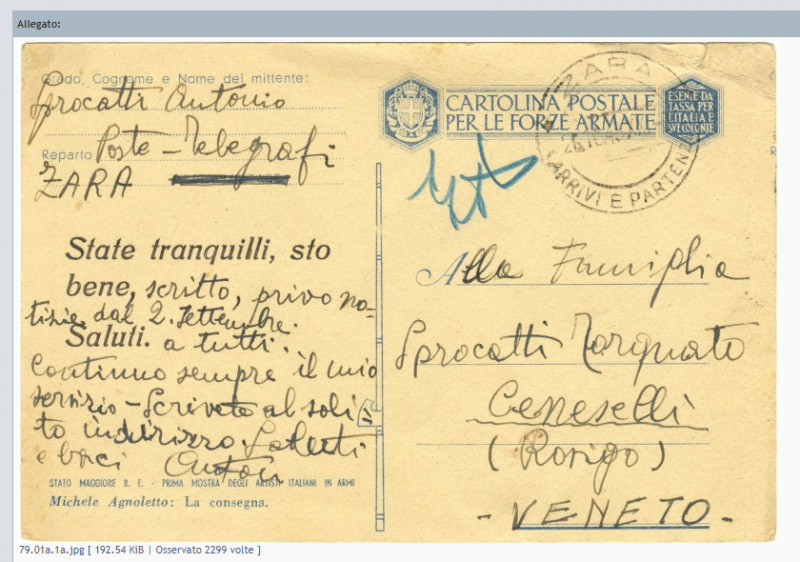 Allegato:
Grado, Cognome e Nome del mittente:
Sprocatti Antonio
Reparto Poste-Telegrafi
ZARA
State tranquilli, sto
bene, scritto, privo no-
tizie dal 2. Settembre.
Saluti. a tutti.
Continuo sempre il mio
servizio - Scrivete al soli
to indirizzo. Saluti
e baci Anton
STATO MAGGIORE R. E. - PRIMA MOSTRA DEGLI ARTISTI ITALIANI IN ARMI
Michele Agnoletto: La consegna.
CARTOLINA POSTALE
PER LE FORZE ARMATE
ESENTE DA
TASSA PER
L'ITALIA E
SVE COLONIE
ZARA
ARRIVI E PARTENZE
Alla Famiglia
Sprocatti Torquato
Ceneselli
(Rovigo)
- VENETO -
79.01a.1a.jpg [ 192.54 KiB | Osservato 2299 volte ]